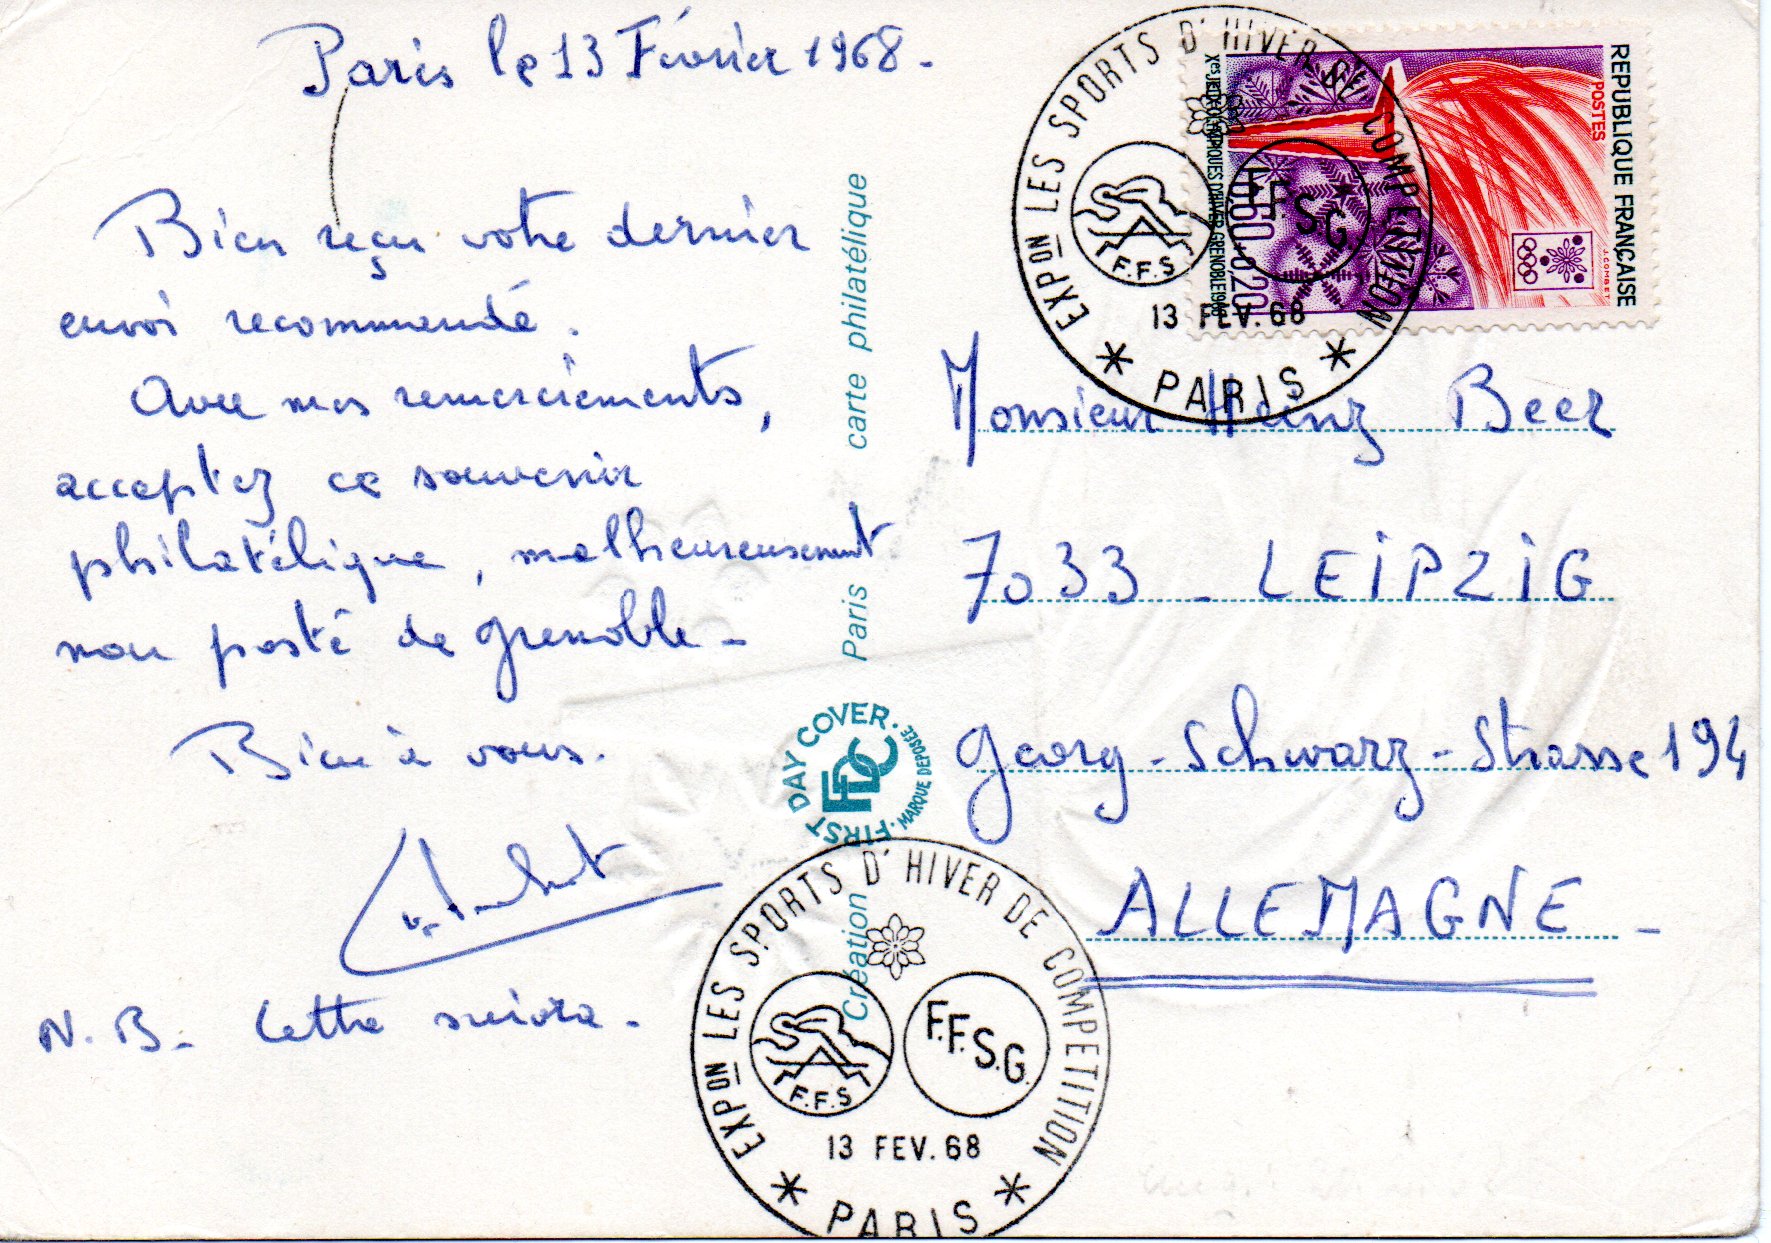 Paris le 13 Février 1968 -
Bien reçu votre dernier
envoi recommandé.
Avec mes remerciements,
acceptez ce souvenir
philatélique, malheureusement
non posté de Grenoble -
Bien à vous.
N.B- Lettre suivra -
carte philatélique
Paris
Création
FIRST DAY COVER · MARQUE DEPOSÉE ·
FDC
EXPON LES SPORTS D'HIVER DE COMPETITION
F.F.S
F.F.S.G.
13 FEV. 68
* PARIS *
REPUBLIQUE FRANÇAISE
POSTES
J.COMBET
0,60+0,20
Xes JEUX OLYMPIQUES D'HIVER GRENOBLE 1968
EXPON LES SPORTS D'HIVER DE COMPETITION
F.F.S
F.F.S.G.
13 FEV. 68
* PARIS *
Monsieur Heinz Beer
7033 - LEIPZIG
Georg-Schwarz-Strasse 194
ALLEMAGNE -